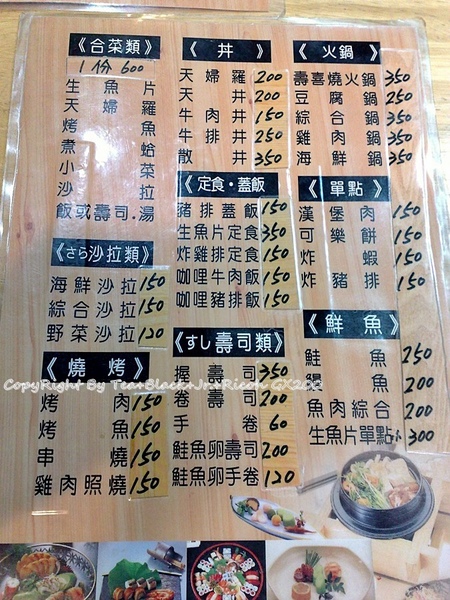 《合菜類》
1份 600
生魚片
天婦羅
烤魚
煮蛤
小菜
沙拉
飯或壽司.湯
《さら沙拉類》
海鮮沙拉 150
綜合沙拉 150
野菜沙拉 120
《燒烤》
烤肉 150
烤魚 150
串燒 150
雞肉照燒 150
《丼》
天婦羅 200
天丼 200
牛肉丼 150
牛排丼 250
散丼 350
《定食·蓋飯》
豬排蓋飯 150
生魚片定食 350
炸雞排定食 150
咖哩牛肉飯 150
咖哩豬排飯 150
《すし壽司類》
握壽司 350
卷壽司 200
手卷 60
鮭魚卵壽司 200
鮭魚卵手卷 120
《火鍋》
壽喜燒火鍋 350
豆腐鍋 250
綜合鍋 350
雞肉鍋 350
海鮮鍋 350
《單點》
漢堡肉 150
可樂餅 150
炸蝦 150
炸豬排 150
《鮮魚》
鮭魚 250
魚 200
魚肉綜合 200
生魚片單點小 300
CopyRight By TearBlack+Jr+Ricoh GX200